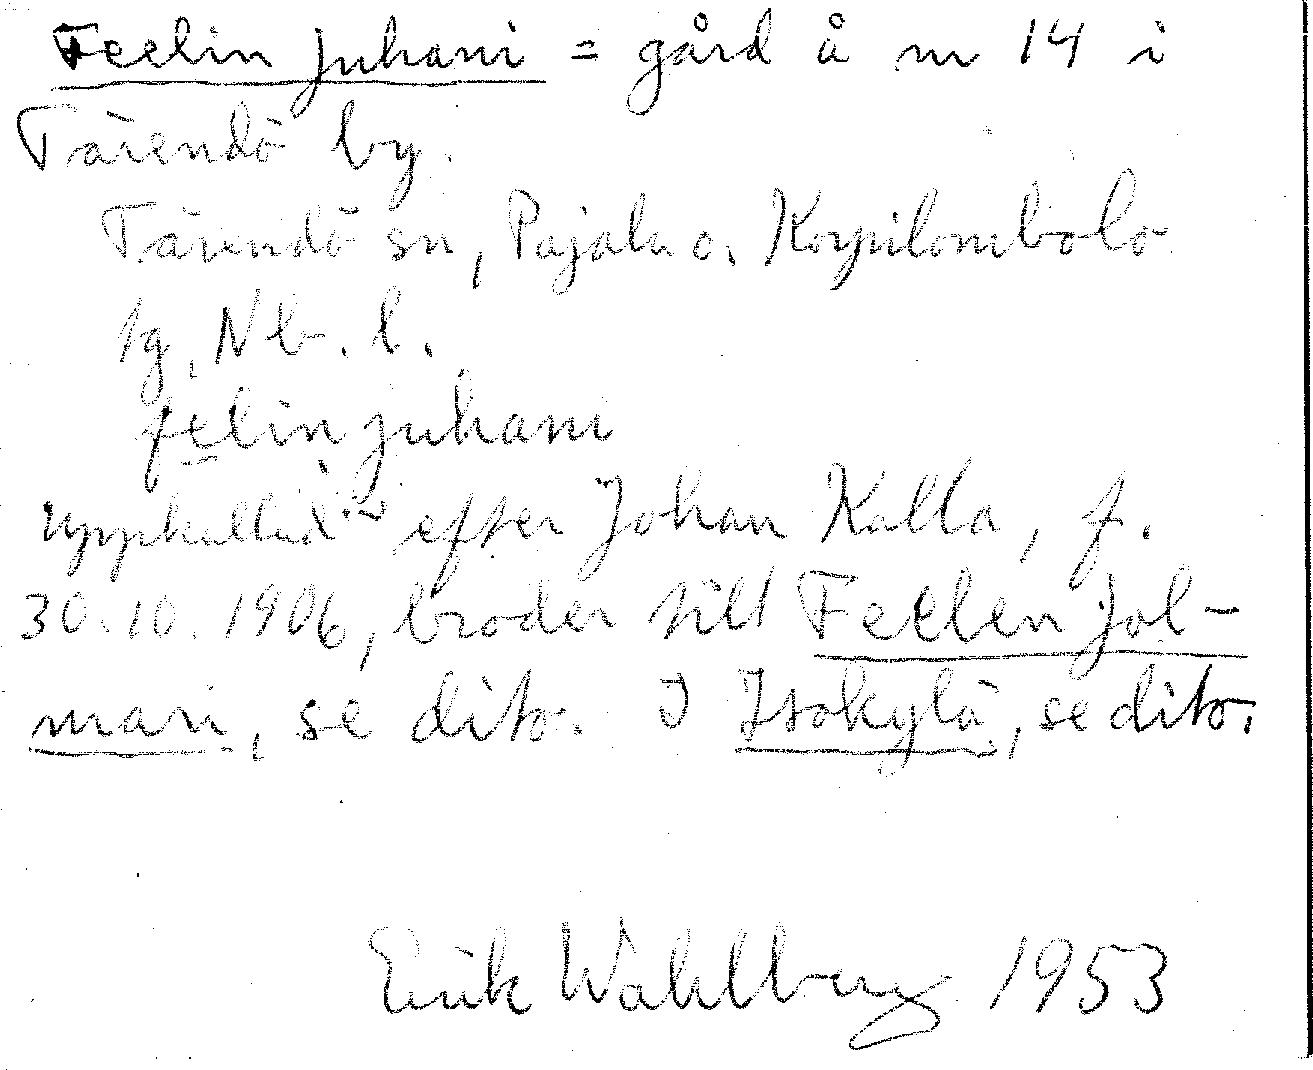 Feelin juhani = gård å nr 14 i
Tärendö by.
Tärendö sn, Pajala o. Korpilombolo
tg, Nb. l.
felin juhani
Uppkallad efter Johan Kalla, f.
30.10.1906, broder till Feelin jal-
mari, se dito. I Isokylä, se dito.
Erik Wahlberg 1953